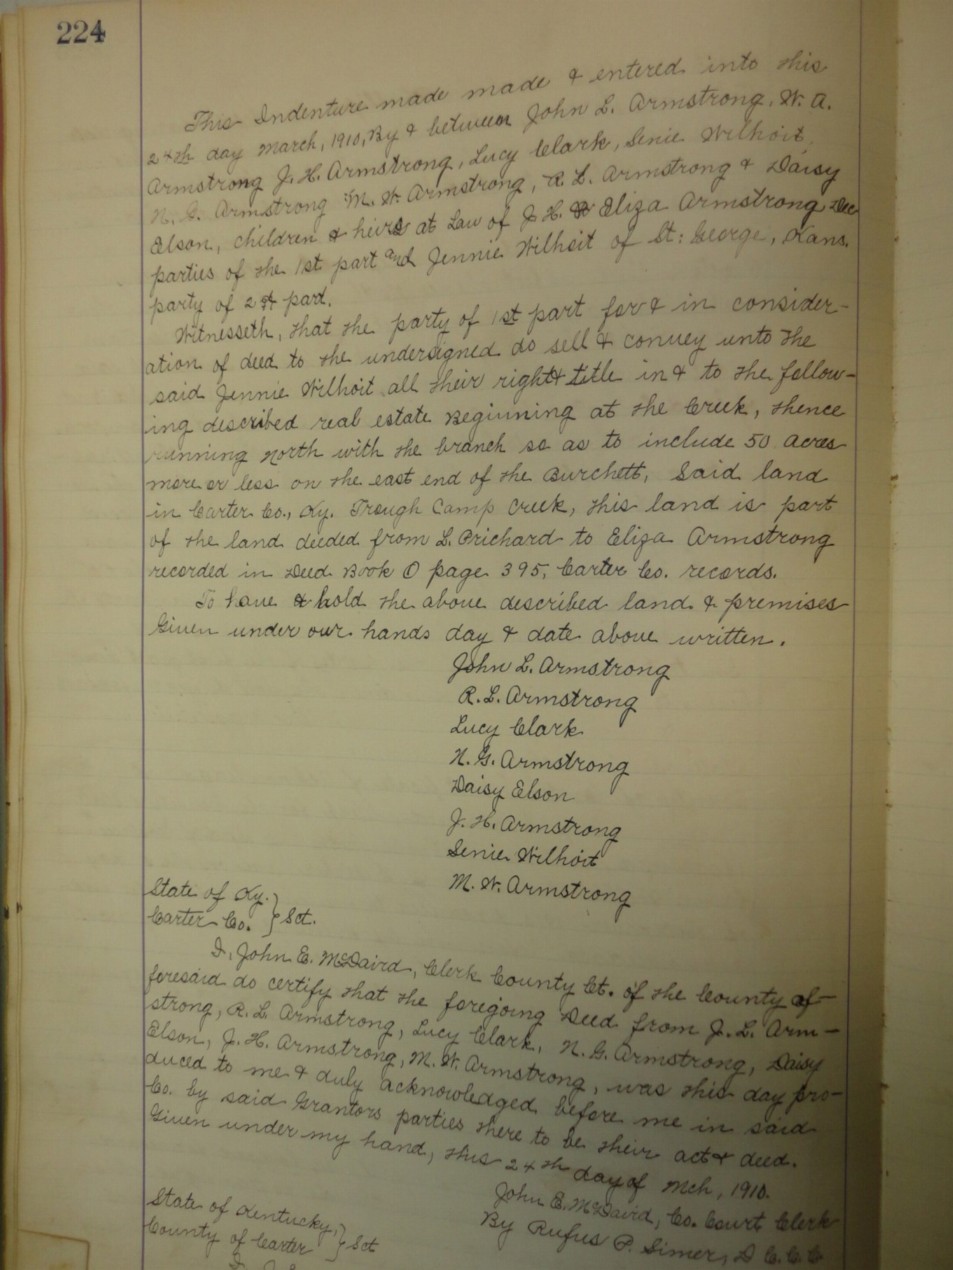 224
This Indenture made made & entered into this
24th day March, 1910, By & between John L. Armstrong, W. A.
Armstrong J. H. Armstrong, Lucy Clark, Senie Wilhoit,
N. G. Armstrong M. W. Armstrong, R. L. Armstrong & Daisy
Elson, children & heirs at Law of J. H. & Eliza Armstrong Dec
parties of the 1st part and Jennie Wilhoit of St: George, Kans.
party of 2nd part.
Witnesseth, that the party of 1st part for & in consider-
ation of deed to the undersigned do sell & convey unto the
said Jennie Wilhoit all their right & title in & to the follow-
ing described real estate Beginning at the Creek, thence
running North with the branch so as to include 50 acres
more or less on the east end of the Burchett, Said land
in Carter Co., Ky. Trough Camp Creek, this land is part
of the land deeded from L. Prichard to Eliza Armstrong
recorded in Deed Book O page 395, Carter Co. records.
To have & hold the above described land & premises
Given under our hands day & date above written.
John L. Armstrong
R. L. Armstrong
Lucy Clark
N. G. Armstrong
Daisy Elson
J. H. Armstrong
Senie Wilhoit
M. W. Armstrong
State of Ky. }
Carter Co. } Sct.
I, John E. McDavid, Clerk County Ct. of the County af-
foresaid do certify that the foregoing Deed from J. L. Arm-
strong, R. L. Armstrong, Lucy Clark, N. G. Armstrong, Daisy
Elson, J. H. Armstrong, M. W. Armstrong, was this day pro-
duced to me & duly acknowledged before me in said
Co. by said Grantors parties there to be their act & deed.
Given under my hand, this 24th day of Mch, 1910.
John E. McDavid, Co. Court Clerk
By Rufus P. Simer, D C. C. C
State of Kentucky, }
County of Carter } Sct